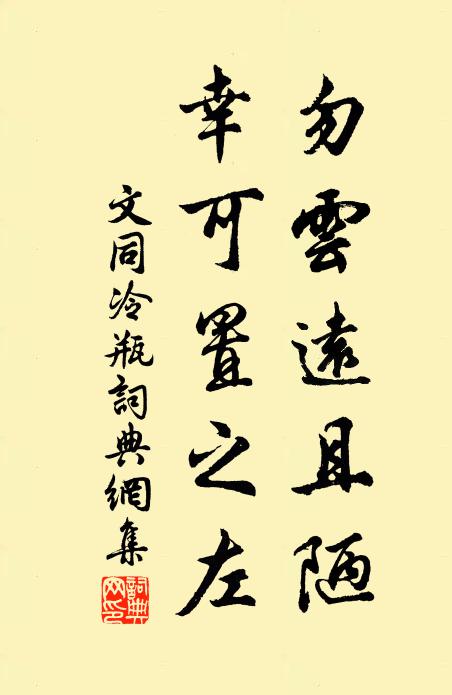 勿雲遠且陋
幸可置之左
文同冷瓶詞典網集
詞典網印